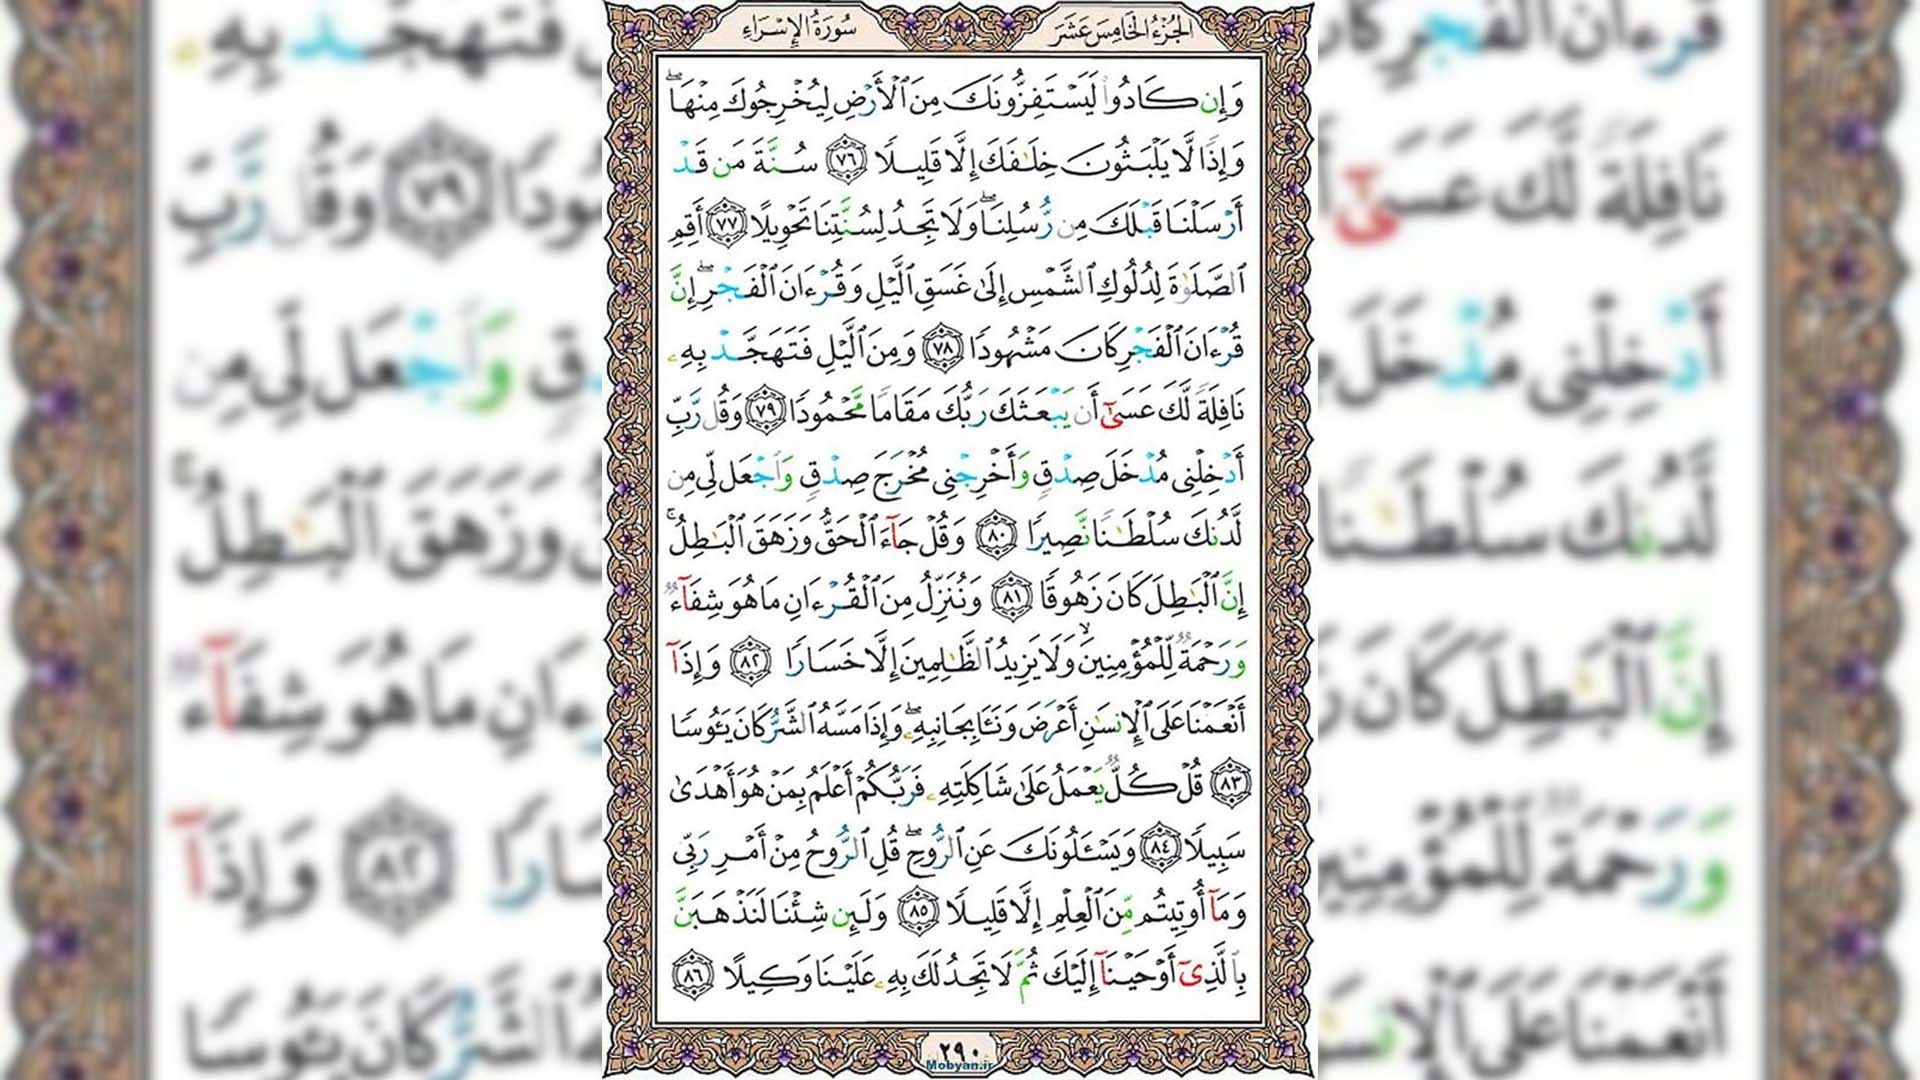 الجزء الخامس عشر
سورة الإسراء
وَإِن كَادُوا۟ لَيَسْتَفِزُّونَكَ مِنَ ٱلْأَرْضِ لِيُخْرِجُوكَ مِنْهَا ۖ
وَإِذًا لَّا يَلْبَثُونَ خِلَـٰفَكَ إِلَّا قَلِيلًا ٧٦ سُنَّةَ مَن قَدْ
أَرْسَلْنَا قَبْلَكَ مِن رُّسُلِنَا ۖ وَلَا تَجِدُ لِسُنَّتِنَا تَحْوِيلًا ٧٧ أَقِمِ
ٱلصَّلَوٰةَ لِدُلُوكِ ٱلشَّمْسِ إِلَىٰ غَسَقِ ٱلَّيْلِ وَقُرْءَانَ ٱلْفَجْرِ ۖ إِنَّ
قُرْءَانَ ٱلْفَجْرِ كَانَ مَشْهُودًا ٧٨ وَمِنَ ٱلَّيْلِ فَتَهَجَّدْ بِهِۦ
نَافِلَةً لَّكَ عَسَىٰٓ أَن يَبْعَثَكَ رَبُّكَ مَقَامًا مَّحْمُودًا ٧٩ وَقُل رَّبِّ
أَدْخِلْنِى مُدْخَلَ صِدْقٍ وَأَخْرِجْنِى مُخْرَجَ صِدْقٍ وَٱجْعَل لِّى مِن
لَّدُنكَ سُلْطَـٰنًا نَّصِيرًا ٨٠ وَقُلْ جَآءَ ٱلْحَقُّ وَزَهَقَ ٱلْبَـٰطِلُ ۚ
إِنَّ ٱلْبَـٰطِلَ كَانَ زَهُوقًا ٨١ وَنُنَزِّلُ مِنَ ٱلْقُرْءَانِ مَا هُوَ شِفَآءٌ
وَرَحْمَةٌ لِّلْمُؤْمِنِينَ ۙ وَلَا يَزِيدُ ٱلظَّـٰلِمِينَ إِلَّا خَسَارًا ٨٢ وَإِذَآ
أَنْعَمْنَا عَلَى ٱلْإِنسَـٰنِ أَعْرَضَ وَنَـَٔا بِجَانِبِهِۦ ۖ وَإِذَا مَسَّهُ ٱلشَّرُّ كَانَ يَـُٔوسًا
٨٣ قُلْ كُلٌّ يَعْمَلُ عَلَىٰ شَاكِلَتِهِۦ فَرَبُّكُمْ أَعْلَمُ بِمَنْ هُوَ أَهْدَىٰ
سَبِيلًا ٨٤ وَيَسْـَٔلُونَكَ عَنِ ٱلرُّوحِ ۖ قُلِ ٱلرُّوحُ مِنْ أَمْرِ رَبِّى
وَمَآ أُوتِيتُم مِّنَ ٱلْعِلْمِ إِلَّا قَلِيلًا ٨٥ وَلَئِن شِئْنَا لَنَذْهَبَنَّ
بِٱلَّذِىٓ أَوْحَيْنَآ إِلَيْكَ ثُمَّ لَا تَجِدُ لَكَ بِهِۦ عَلَيْنَا وَكِيلًا ٨٦
٢٩٠
Mobyan.ir